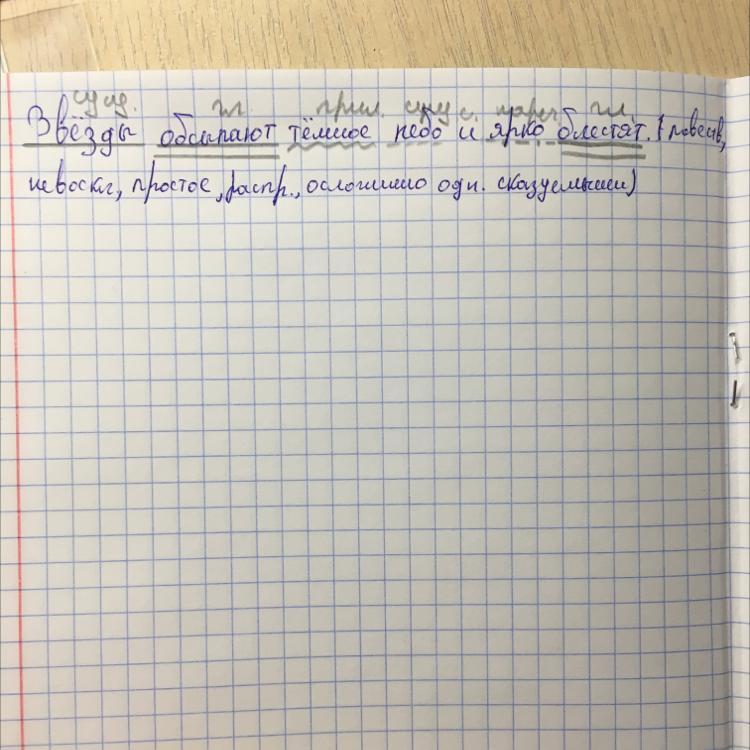 сущ. гл. прил. сущ. с. нареч гл.
Звёзды обсыпают тёмное небо и ярко блестят. (повеств,
невоскл, простое, распр., осложнено одн. сказуемыми)